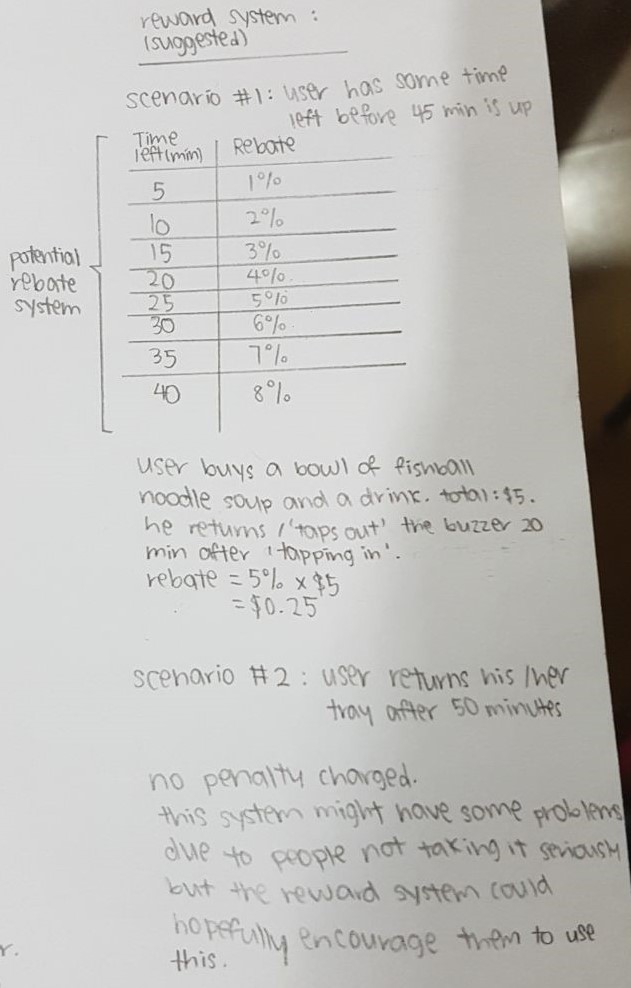 reward system :
(suggested)
scenario #1: user has some time
left before 45 min is up
Time
left(min) Rebate
5 1%
10 2%
15 3%
20 4%
25 5%
30 6%
35 7%
40 8%
potential
rebate
system
user buys a bowl of fishball
noodle soup and a drink. total: $5.
he returns / 'taps out' the buzzer 20
min after 'tapping in'.
rebate = 5% x $5
= $0.25
scenario #2 : user returns his/her
tray after 50 minutes
no penalty charged.
this system might have some problems
due to people not taking it seriously
but the reward system could
hopefully encourage them to use
this.
r.